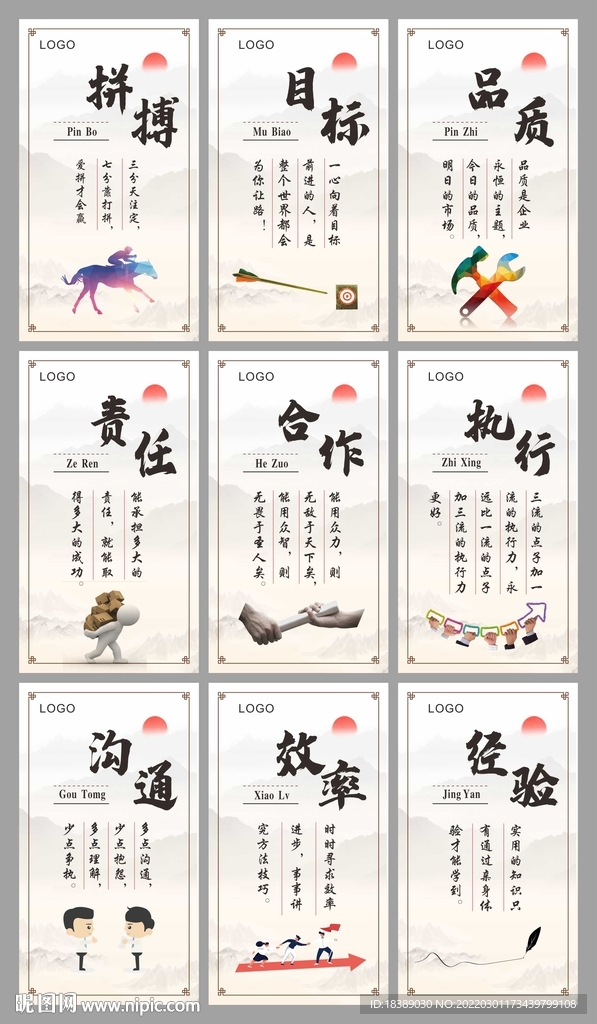 LOGO
拼搏
Pin Bo
三分天注定，
七分靠打拼，
爱拼才会赢
LOGO
目标
Mu Biao
一心向着目标
前进的人，是
整个世界都会
为你让路！
LOGO
品质
Pin Zhi
品质是企业
永恒的主题，
今日的品质，
明日的市场。
LOGO
责任
Ze Ren
能承担多大的
责任，就能取
得多大的成功。
LOGO
合作
He Zuo
能用众力，则
无敌于天下矣，
能用众智，则
无畏于圣人矣。
LOGO
执行
Zhi Xing
三流的点子加一
流的执行力，永
远比一流的点子
加三流的执行力
更好。
LOGO
沟通
Gou Tomg
多点沟通，
少点抱怨，
多点理解，
少点争执。
LOGO
效率
Xiao Lv
时时寻求效率
进步，事事讲
究方法技巧。
LOGO
经验
Jing Yan
实用的知识只
有通过亲身体
验才能学到。
昵图网 www.nipic.com
ID:18389030 NO:20220301173439799108